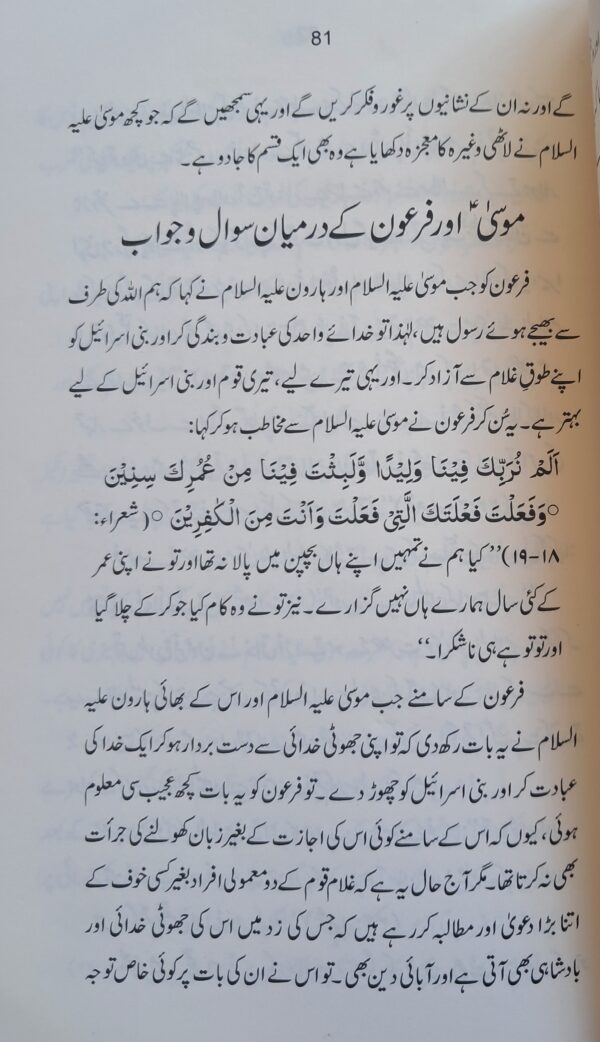 81
گے اور نہ ان کے نشانیوں پر غور و فکر کریں گے اور یہی سمجھیں گے کہ جو کچھ موسیٰ علیہ
السلام نے لاٹھی وغیرہ کا معجزہ دکھایا ہے وہ بھی ایک قسم کا جادو ہے۔
موسیٰؑ اور فرعون کے درمیان سوال و جواب
فرعون کو جب موسیٰ علیہ السلام اور ہارون علیہ السلام نے کہا کہ ہم اللہ کی طرف
سے بھیجے ہوئے رسول ہیں، لہٰذا تو خدائے واحد کی عبادت و بندگی کر اور بنی اسرائیل کو
اپنے طوقِ غلام سے آزاد کر۔ اور یہی تیرے لیے، تیری قوم اور بنی اسرائیل کے لیے
بہتر ہے۔ یہ سُن کر فرعون نے موسیٰ علیہ السلام سے مخاطب ہو کر کہا:
اَلَمْ نُرَبِّكَ فِيْنَا وَلِيْدًا وَّلَبِثْتَ فِيْنَا مِنْ عُمُرِكَ سِنِيْنَ
○وَفَعَلْتَ فَعْلَتَكَ الَّتِيْ فَعَلْتَ وَاَنْتَ مِنَ الْكٰفِرِيْنَ ○( شعراء:
۱۸-۱۹)’’ کیا ہم نے تمہیں اپنے ہاں بچپن میں پالا نہ تھا اور تو نے اپنی عمر
کے کئی سال ہمارے ہاں نہیں گزارے۔ نیز تو نے وہ کام کیا جو کر کے چلا گیا
اور تو تو ہے ہی ناشکرا۔‘‘
فرعون کے سامنے جب موسیٰ علیہ السلام اور اس کے بھائی ہارون علیہ
السلام نے یہ بات رکھ دی کہ تو اپنی جھوٹی خدائی سے دست بردار ہو کر ایک خدا کی
عبادت کر اور بنی اسرائیل کو چھوڑ دے۔ تو فرعون کو یہ بات کچھ عجیب سی معلوم
ہوئی، کیوں کہ اس کے سامنے کوئی اس کی اجازت کے بغیر زبان کھولنے کی جرأت
بھی نہ کرتا تھا۔ مگر آج حال یہ ہے کہ غلام قوم کے دو معمولی افراد بغیر کسی خوف کے
اتنا بڑا دعویٰ اور مطالبہ کر رہے ہیں کہ جس کی زد میں اس کی جھوٹی خدائی اور
بادشاہی بھی آتی ہے اور آبائی دین بھی۔ تو اس نے ان کی بات پر کوئی خاص توجہ